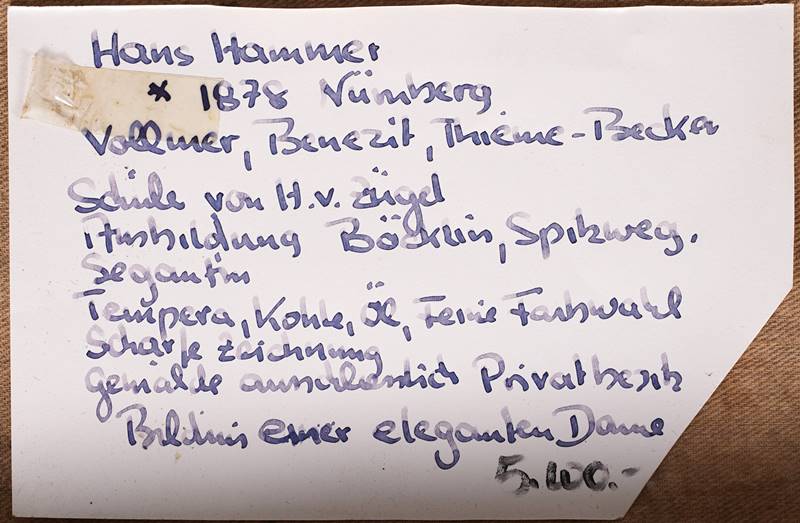 Hans Hammer
* 1878 Nürnberg
Vollmer, Benezit, Thieme-Becker
Schule von H.v. Zügel
Ausbildung Böcklin, Spitzweg.
Segantin
Tempera, Kohle, Öl, Feine Farbwahl
Scharfe Zeichnung
Gemälde ausschliesslich Privatbesitz
Bildnis einer eleganten Dame
5.100.-